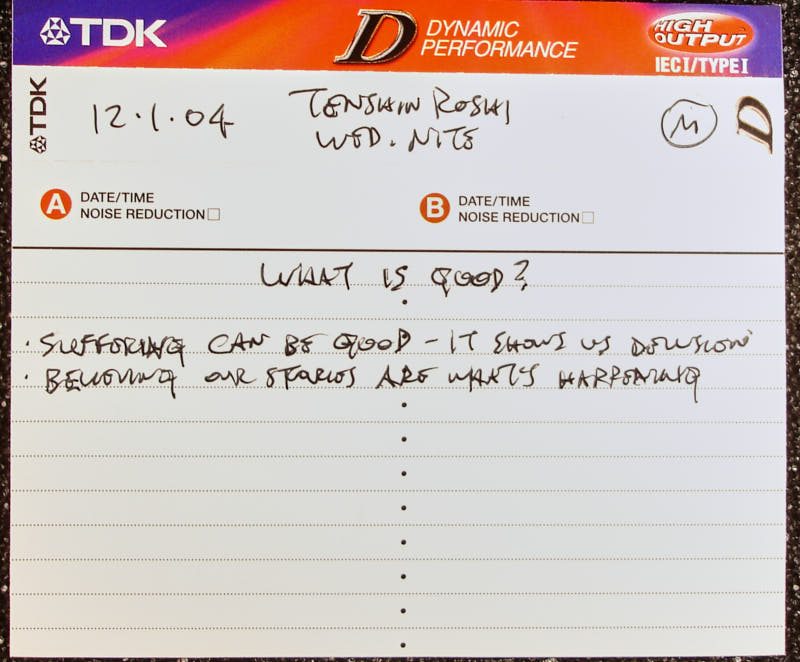 TDK
D DYNAMIC PERFORMANCE
HIGH OUTPUT
IEC I/TYPE I
TDK
12.1.04
TENSHIN ROSHI
WED. NITE
M
D
A DATE/TIME
NOISE REDUCTION
B DATE/TIME
NOISE REDUCTION
WHAT IS GOOD?
· SUFFERING CAN BE GOOD - IT SHOWS US DELUSION
· BELIEVING OUR STORIES ARE WHAT'S HAPPENING